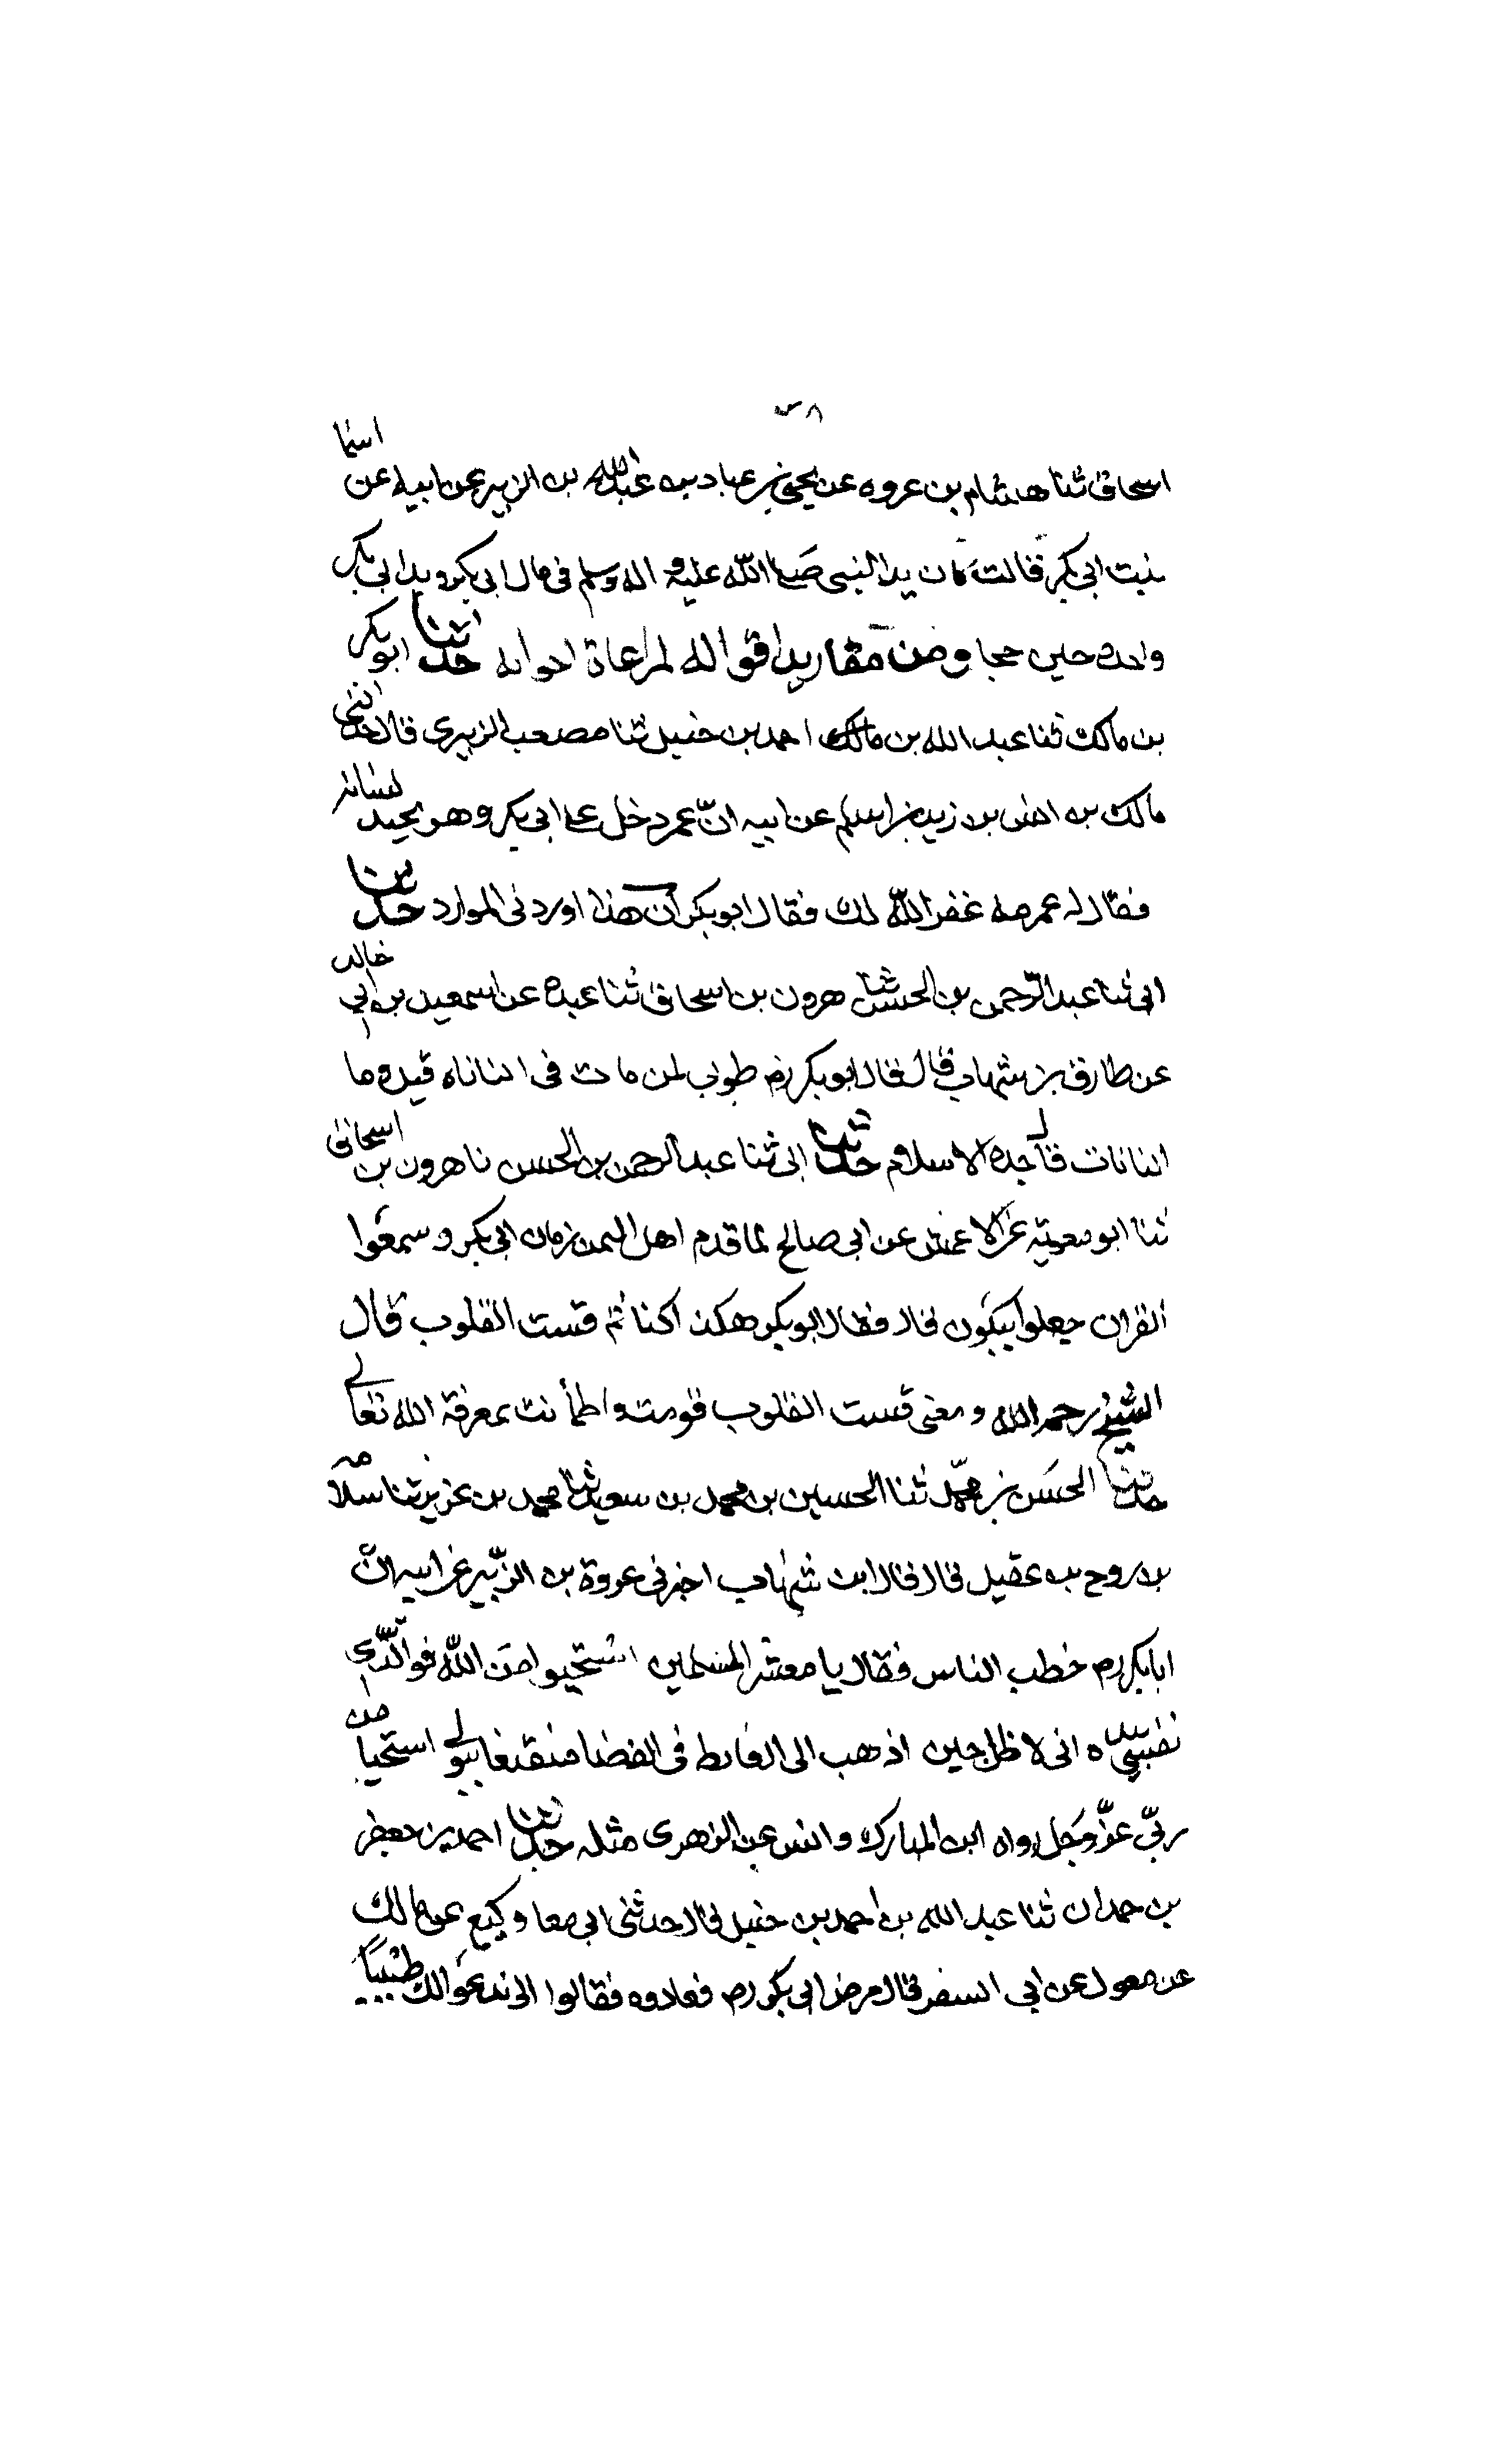 ٣٨
اسحاق ثنا هشام بن عروه عن يحيى بن عباد بن عبدالله بن الزبير عن ابيه عن اسما
بنت ابى بكر قالت كان يد النبى صلى الله عليه و اله وسلم فى مال ابى بكر ويد ابى بكر
واحده حين حجا و من مقاريد اقواله لمراعاة احواله حدثنا ابو بكر
بن مالك ثنا عبد الله بن مالك احمد بن حنبل ثنا مصعب الزبيرى قال حدثنى
مالك بن انس بن زيد بن اسلم عن ابيه انّ عمر دخل على ابى بكر وهو يجبد لسانه
فقال له عمر مه غفر الله لك فقال ابو بكر ان هذا اوردنى الموارد حدثنا
ابى ثنا عبد الرّحمن بن الحسن ثنا هرون بن اسحاق ثنا عبده عن اسمعيل بن ابى خالد
عن طارق بن شهاب قال قال ابو بكر رض طوبى لمن مات فى النانأه قيل وما
النانات قال جده الاسلام حدثنا ابى ثنا عبد الرحمن بن الحسن نا هرون بن اسحاق
ثنا ابو معوية عن الاعمش عن ابى صالح لما قدم اهل اليمن زمان ابى بكر وسمعوا
القران جعلوا يبكون قال فقال ابو بكر هكذا كنا ثم قست القلوب قال
الشيخ رحمه الله ومعنى قست القلوب قومت واطمأنت بمعرفة الله تعالى
حدثنا الحسن بن محمّد ثنا الحسين بن محمد بن سعيد ثنا محمد بن عزيز ثنا سلامه
بن روح بن عقيل قال قال ابن شهاب اخبرنى عروة بن الزّبير عن ابيه انّ
ابا بكر رض خطب الناس فقال يا معشر المسلمين استحيوا من الله فو الّذى
نفسى بيده انى لاظل حين اذهب الى الغايط فى الفضا متقنعا بثوبى استحيا من
ربّى عزّ وجل رواه ابن المبارك و انس عن الزهرى مثله حدثنا احمد بن جعفر
بن حمدان ثنا عبد الله بن احمد بن حنبل قال حدثنى ابى معا وكيع عن مالك
عن معول عن ابى السفر قال مرض ابى بكر رض فعادوه فقالوا الا ندعوا لك طبيبًا